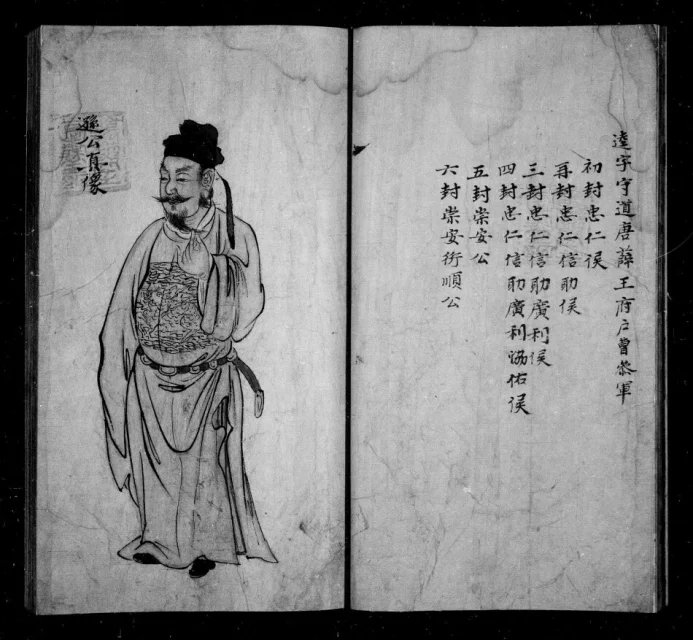 逵字守道唐薛王府户曹叅軍
初封忠仁侯
再封忠仁信助侯
三封忠仁信助廣利侯
四封忠仁信助廣利協佑侯
五封崇安公
六封崇安衍順公
遜公真像